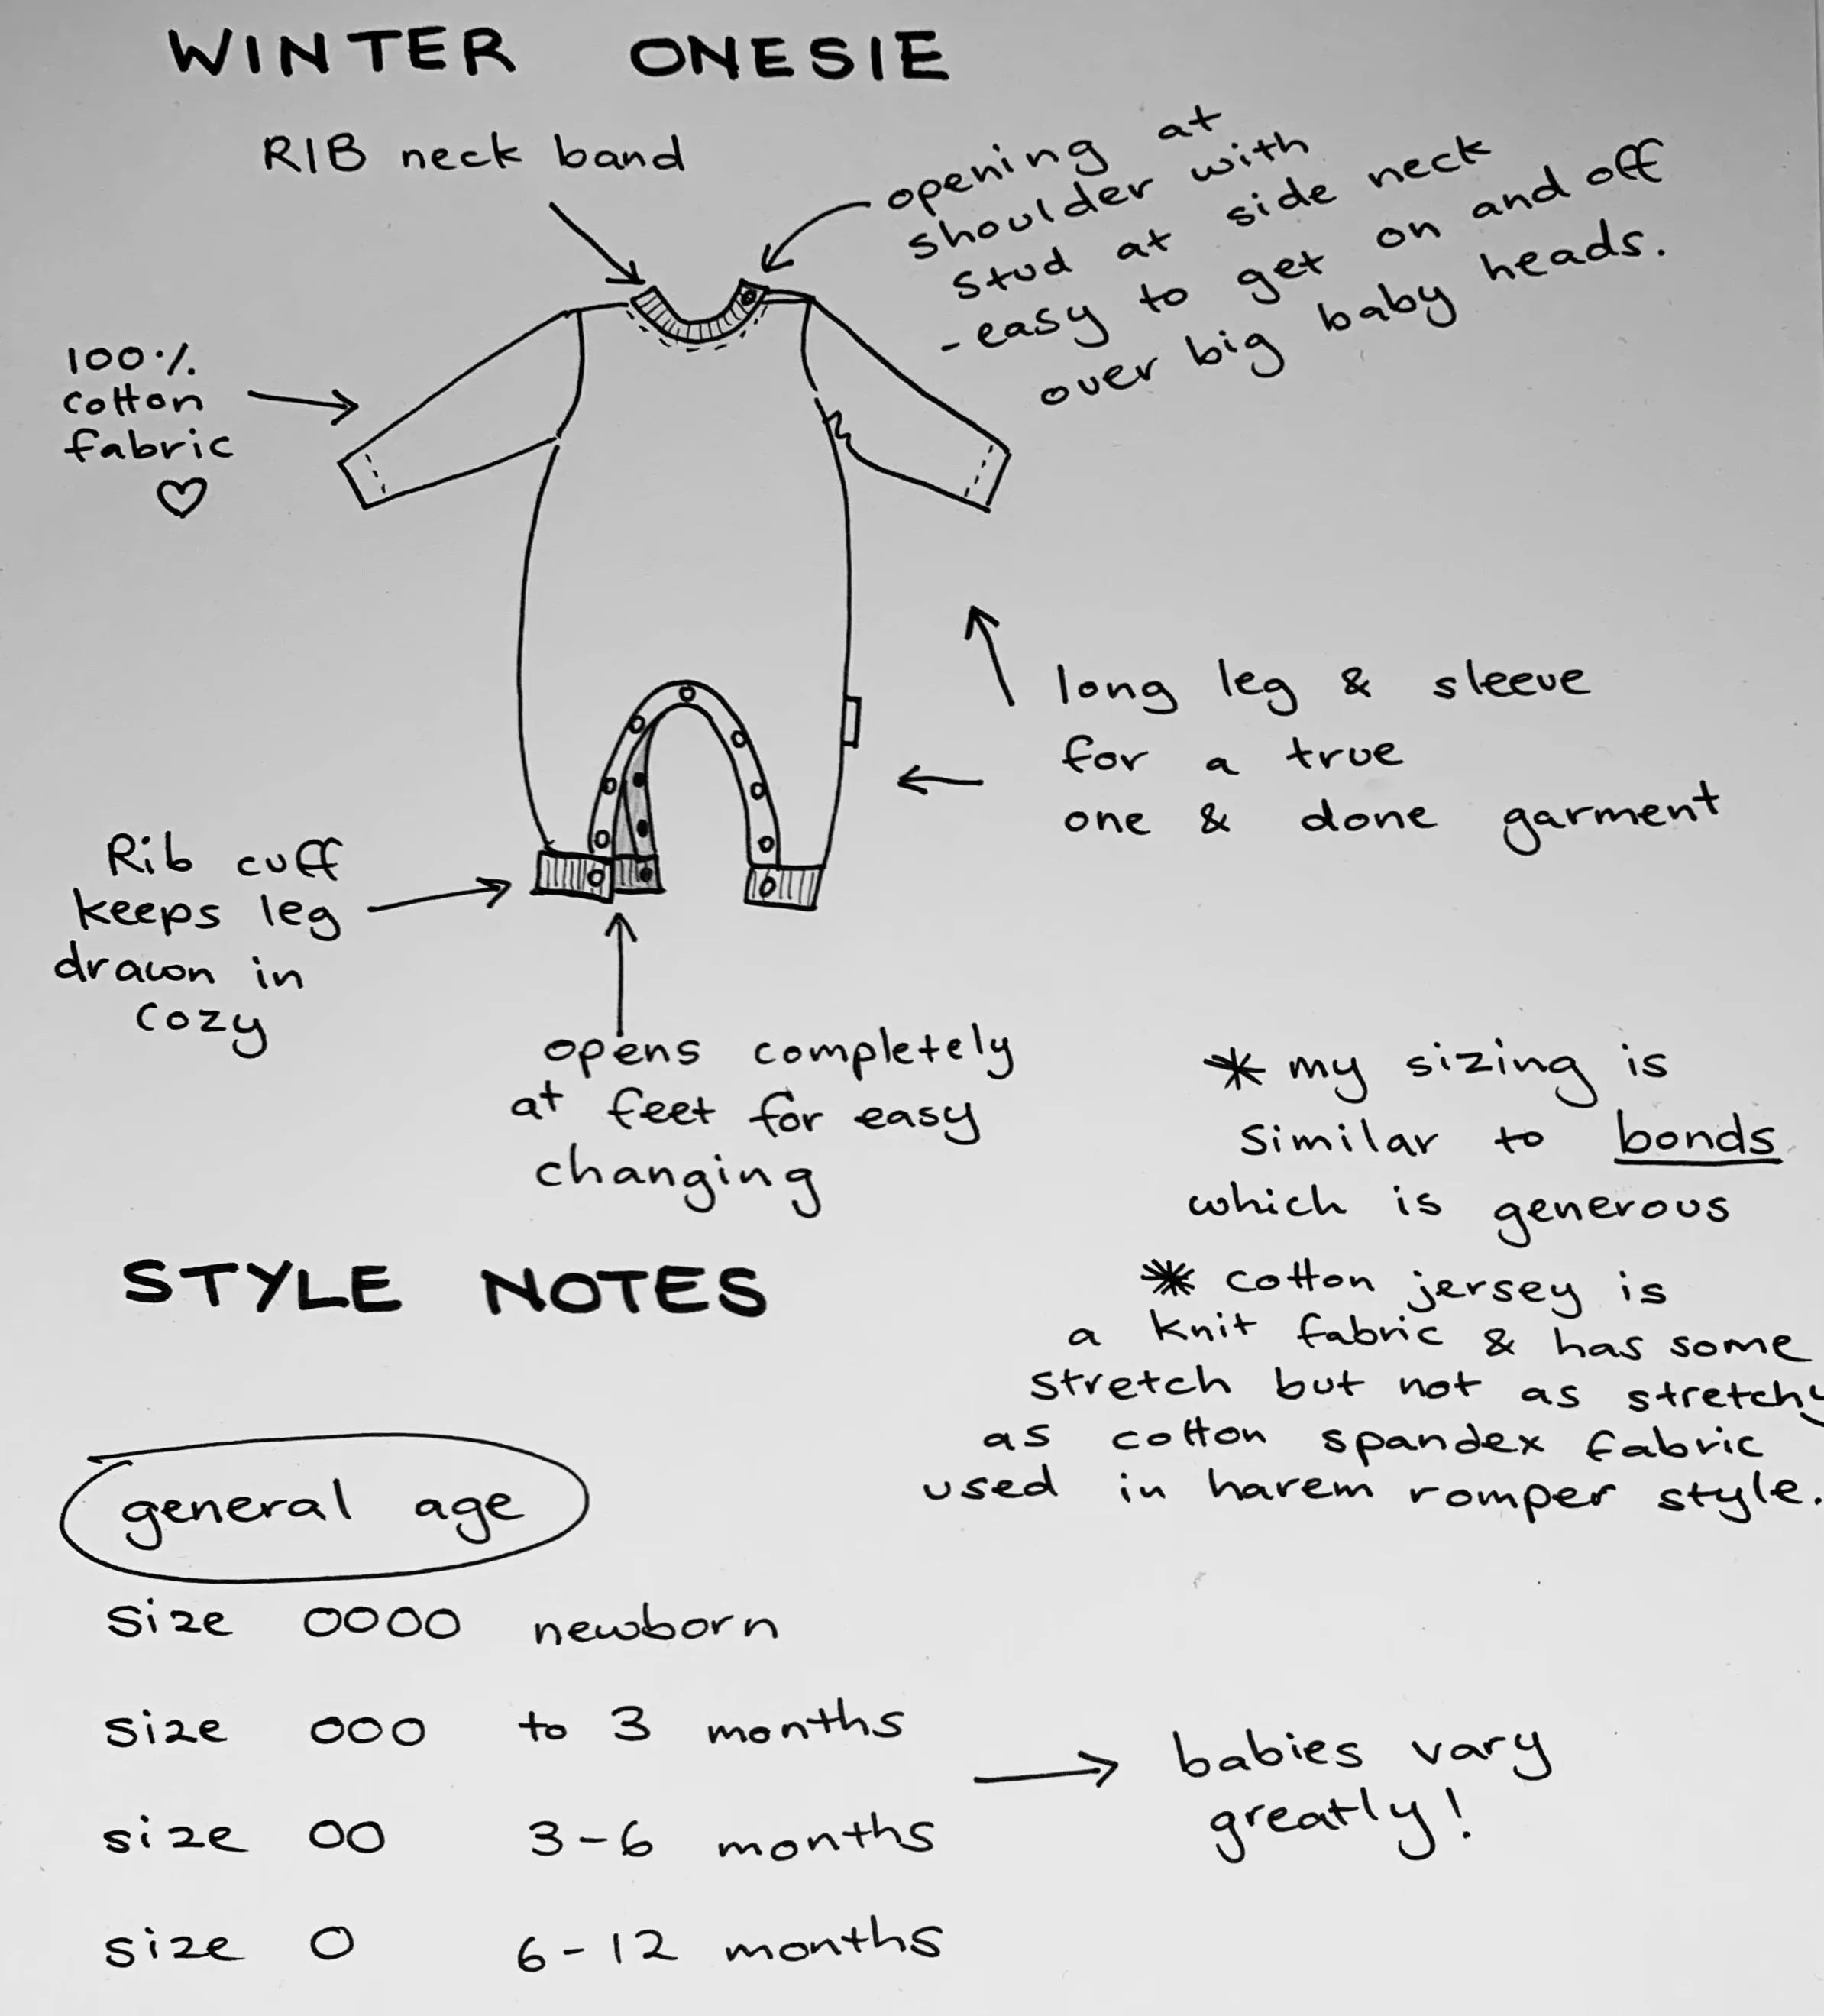 WINTER ONESIE
RIB neck band
opening at
shoulder with
stud at side neck
-easy to get on and off
over big baby heads.
100%
cotton
fabric
long leg & sleeve
for a true
one & done garment
Rib cuff
keeps leg
drawn in
cozy
opens completely
at feet for easy
changing
* my sizing is
similar to bonds
which is generous
* cotton jersey is
a knit fabric & has some
stretch but not as stretchy
as cotton spandex fabric
used in harem romper style.
STYLE NOTES
general age
size 0000 newborn
size 000 to 3 months
size 00 3-6 months
size 0 6-12 months
babies vary
greatly!